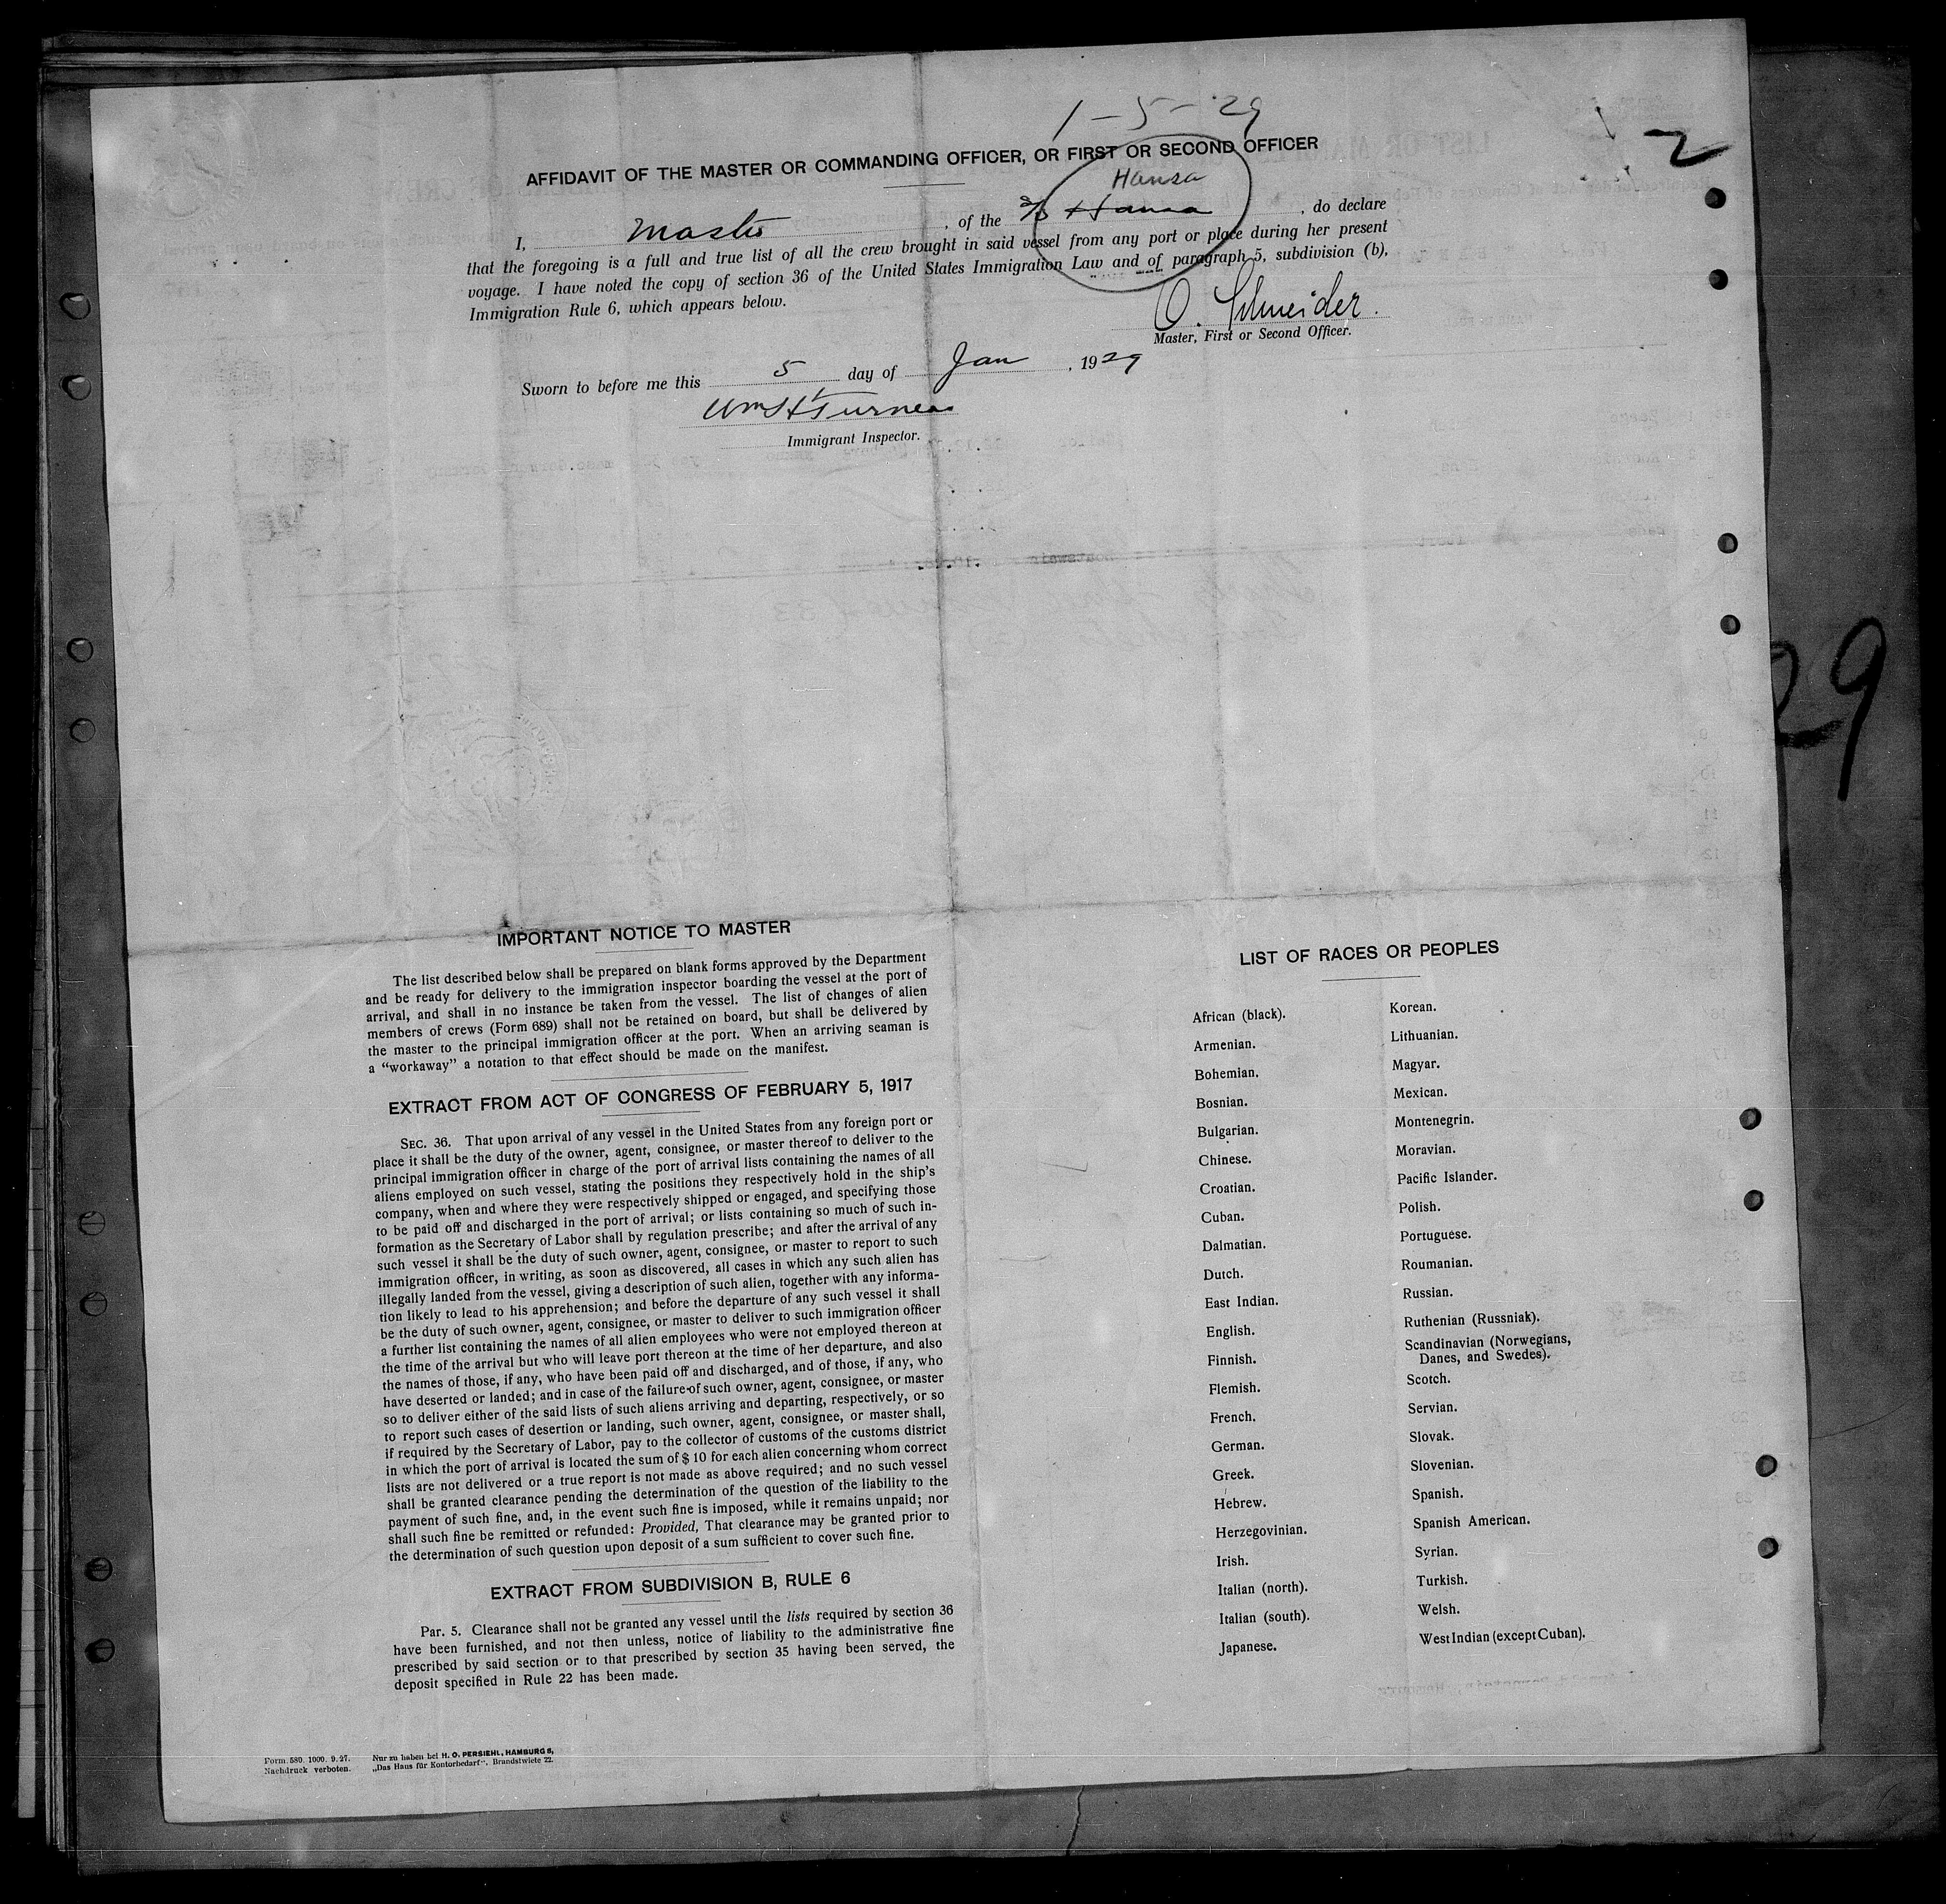 1-5-29
2
AFFIDAVIT OF THE MASTER OR COMMANDING OFFICER, OR FIRST OR SECOND OFFICER
Hansa
I, Master, of the S/S Hansa, do declare
that the foregoing is a full and true list of all the crew brought in said vessel from any port or place during her present
voyage. I have noted the copy of section 36 of the United States Immigration Law and of paragraph 5, subdivision (b),
Immigration Rule 6, which appears below.
O. Schneider.
Master, First or Second Officer.
Sworn to before me this 5 day of Jan, 1929
Wm H Turner
Immigrant Inspector.
29
IMPORTANT NOTICE TO MASTER
The list described below shall be prepared on blank forms approved by the Department
and be ready for delivery to the immigration inspector boarding the vessel at the port of
arrival, and shall in no instance be taken from the vessel. The list of changes of alien
members of crews (Form 689) shall not be retained on board, but shall be delivered by
the master to the principal immigration officer at the port. When an arriving seaman is
a “workaway” a notation to that effect should be made on the manifest.
EXTRACT FROM ACT OF CONGRESS OF FEBRUARY 5, 1917
SEC. 36. That upon arrival of any vessel in the United States from any foreign port or
place it shall be the duty of the owner, agent, consignee, or master thereof to deliver to the
principal immigration officer in charge of the port of arrival lists containing the names of all
aliens employed on such vessel, stating the positions they respectively hold in the ship's
company, when and where they were respectively shipped or engaged, and specifying those
to be paid off and discharged in the port of arrival; or lists containing so much of such in-
formation as the Secretary of Labor shall by regulation prescribe; and after the arrival of any
such vessel it shall be the duty of such owner, agent, consignee, or master to report to such
immigration officer, in writing, as soon as discovered, all cases in which any such alien has
illegally landed from the vessel, giving a description of such alien, together with any informa-
tion likely to lead to his apprehension; and before the departure of any such vessel it shall
be the duty of such owner, agent, consignee, or master to deliver to such immigration officer
a further list containing the names of all alien employees who were not employed thereon at
the time of the arrival but who will leave port thereon at the time of her departure, and also
the names of those, if any, who have been paid off and discharged, and of those, if any, who
have deserted or landed; and in case of the failure of such owner, agent, consignee, or master
so to deliver either of the said lists of such aliens arriving and departing, respectively, or so
to report such cases of desertion or landing, such owner, agent, consignee, or master shall,
if required by the Secretary of Labor, pay to the collector of customs of the customs district
in which the port of arrival is located the sum of $ 10 for each alien concerning whom correct
lists are not delivered or a true report is not made as above required; and no such vessel
shall be granted clearance pending the determination of the question of the liability to the
payment of such fine, and, in the event such fine is imposed, while it remains unpaid; nor
shall such fine be remitted or refunded: Provided, That clearance may be granted prior to
the determination of such question upon deposit of a sum sufficient to cover such fine.
EXTRACT FROM SUBDIVISION B, RULE 6
Par. 5. Clearance shall not be granted any vessel until the lists required by section 36
have been furnished, and not then unless, notice of liability to the administrative fine
prescribed by said section or to that prescribed by section 35 having been served, the
deposit specified in Rule 22 has been made.
Form. 589. 1000. 9. 27.
Nachdruck verboten.
Nur zu haben bei H. O. PERSIEHL, HAMBURG 8,
„Das Haus für Kontorbedarf“, Brandstwiete 22.
LIST OF RACES OR PEOPLES
African (black).
Armenian.
Bohemian.
Bosnian.
Bulgarian.
Chinese.
Croatian.
Cuban.
Dalmatian.
Dutch.
East Indian.
English.
Finnish.
Flemish.
French.
German.
Greek.
Hebrew.
Herzegovinian.
Irish.
Italian (north).
Italian (south).
Japanese.
Korean.
Lithuanian.
Magyar.
Mexican.
Montenegrin.
Moravian.
Pacific Islander.
Polish.
Portuguese.
Roumanian.
Russian.
Ruthenian (Russniak).
Scandinavian (Norwegians,
Danes, and Swedes).
Scotch.
Servian.
Slovak.
Slovenian.
Spanish.
Spanish American.
Syrian.
Turkish.
Welsh.
West Indian (except Cuban).